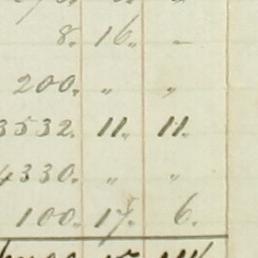 8. 16. -
200. " "
3532. 11. 11.
4330. " "
100. 17. 6.